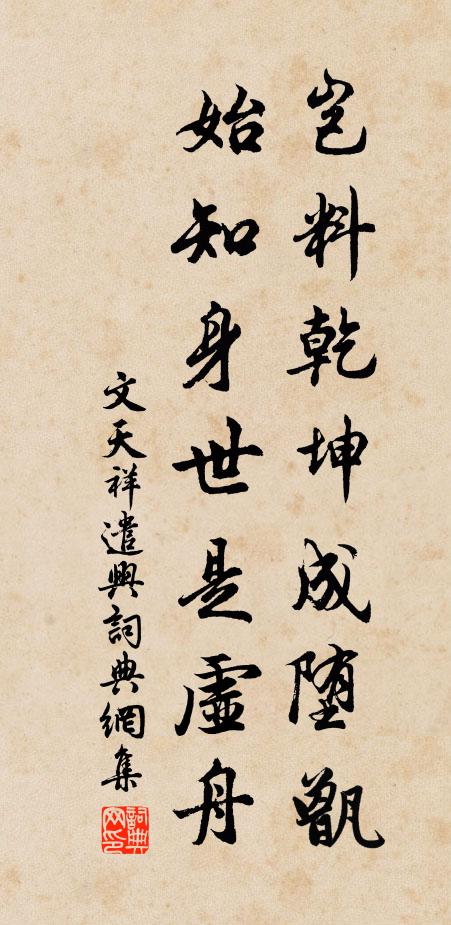 岂料乾坤成堕甑
始知身世是虛舟
文天祥遣興詞典網集
詞典网印